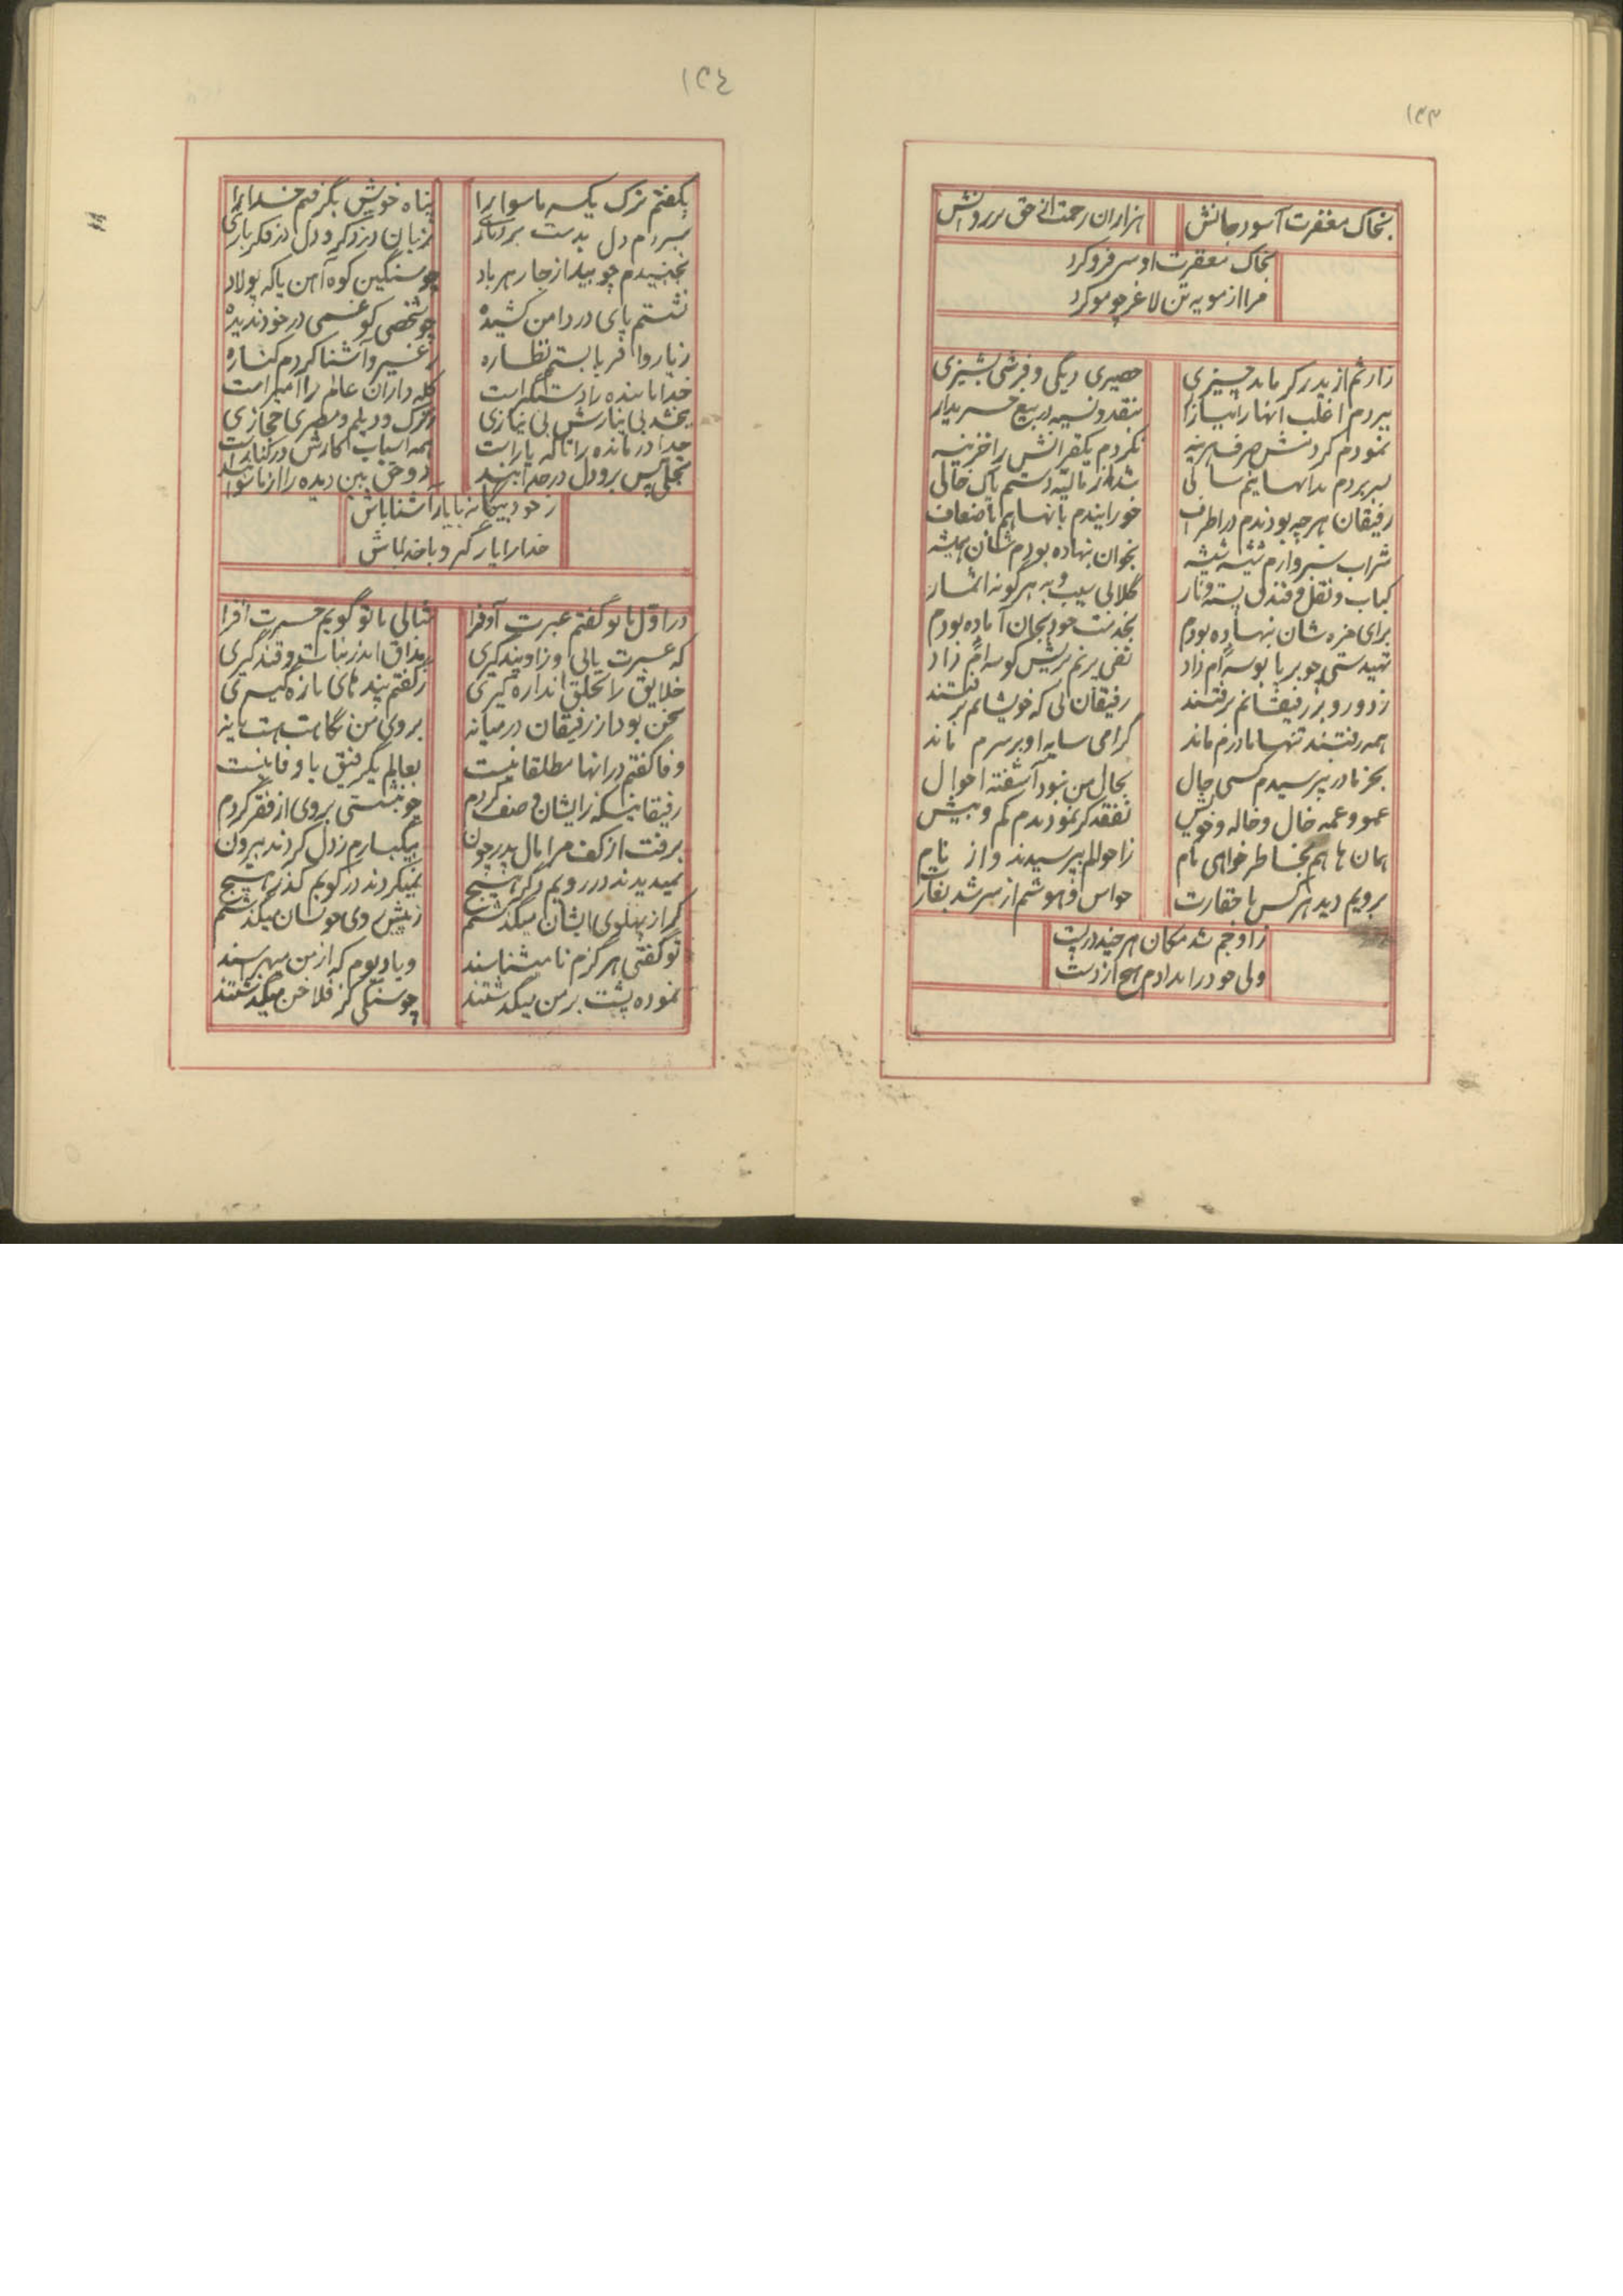 ۱۴۳
بخاک مغفرت آسود جانش هزاران رحمت از حق بر روانش
بخاک مغفرت او سر فرو کرد
مرا از مویه تن لاغر چو مو کرد
ز ارثم از پدر گر ماند چیزی حصیری دیگی و فرشی پشیزی
ببردم اغلب آنها را ببازار بنقد و نسیه در بیع خریدار
نمودم کردنش صرف هزینه نکردم یکقرانش را خزینه
بسر بردم بدانها نیم سالی شد از مالیه دستم پاک خالی
رفیقان هرچه بودندم در اطراف خورانیدم بآنها هم باضعاف
شراب سبزوارم شیشه شیشه بخوان بنهاده بودم شان همیشه
کباب و نقل و فندق پسته و نار گلابی سیب و به هر گونه اثمار
برای مزه شان بنهاده بودم بخدمت خود بجان آماده بودم
تهیدستی چو بر پا بوسه ام داد تفی بر نم بریش کوسه ام زاد
ز دور و بر رفیقانم برفتند رفیقان لی که خویشانم برفتند
همه رفتند تنها مادرم ماند گرامی سایه او بر سرم ماند
بجز مادر نپرسیدم کسی حال بحال من نبود آشفته احوال
عمو و عمه خال و خاله و خویش تفقد گر نمودندم کم و بیش
همان ها هم بخاطر خواهی مام ز احوالم بپرسیدند و از نام
برویم دید هر کس با حقارت حواس و هوشم از سر شد بغارت
ز اوجم شد مکان هر چند در پست
ولی خود را ندادم هیچ از دست
۱۴۴
بگفتم ترک یکسر ماسوا را پناه خویش بگرفتم خدا را
سپردم دل بدست بردباری زبان در ذکر و دل در فکر باری
نجنبیدم چو بید از جا ز هر باد چو سنگین کوه آهن یا که پولاد
نشستم پای در دامن کشیده چو شخصی کو غمی در خود ندیده
ز یار و اقربا بستم نظاره ز غیر و آشنا کردم کناره
خدا با بنده را دستگیر است کله داران عالم را امیر است
ببخشد بی نیازش بی نیازی ز ترک و دیلم و مصری حجازی
خدا درمانده را تا که یار است همه اسباب کارش در کنار است
تجلی پس برو دل در خدا بند دو حق بین دیده را از ماسوا بند
ز خود بیگانه با یار آشنا باش
خدا را یار گیر و با خدا باش
در اول با تو گفتم عبرت افزا مثالی با تو گویم حسرت افزا
که عبرت یابی و زاو پند گیری مذاق اندر نبات و قند گیری
خلایق را بخلق اندازه گیری ز گفتم پند های تازه گیری
سخن بود از رفیقان در میانه بروی من نگاهت هست یا نه
وفا گفتم در آنها مطلقا نیست بعالم یک رفیق با وفا نیست
رفیقانیکه ز ایشان وصف کردم چو بنشستی بروی از فقر گردم
برفت از کف مرا مال پدر چون بیکبارم ز دل کردند بیرون
نمیدیدند در رویم دگر هیچ نمیکردند در کویم گذر هیچ
گر از پهلوی ایشان میگذشتم ز پیش روی خوشان میگذشتم
تو گفتی هرگزم نا میشناسند و یا دیوم که از من میهراسند
نموده پشت بر من میگذشتند چو سنگی کز فلاخن میگذشتند